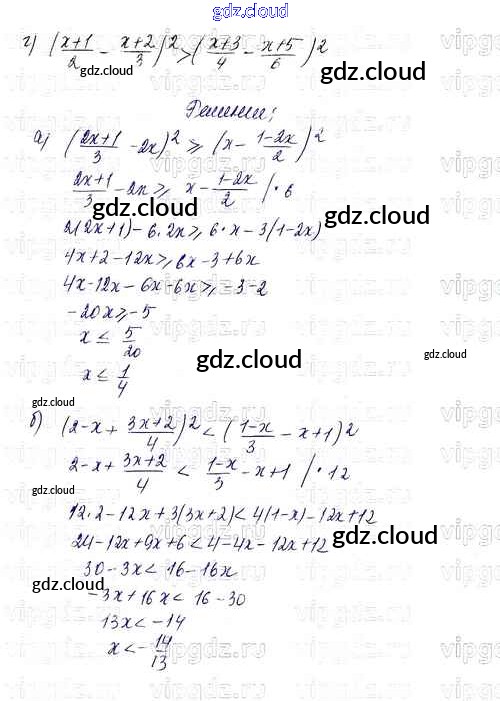 gdz.cloud
г) ((x+1)/2 - (x+2)/3)² > ((x+3)/4 - (x+5)/6)²
gdz.cloud gdz.cloud
Решение:
а) ((2x+1)/3 - 2x)² ⩾ (x - (1-2x)/2)²
(2x+1)/3 - 2x ⩾ x - (1-2x)/2 | · 6
gdz.cloud gdz.cloud
2(2x+1) - 6·2x ⩾ 6·x - 3(1-2x)
4x+2-12x ⩾ 6x-3+6x
4x-12x-6x-6x ⩾ -3-2
-20x ⩾ -5
x ≤ 5/20
gdz.cloud gdz.cloud
x ≤ 1/4
gdz.cloud
б) (2-x + (3x+2)/4)² < ((1-x)/3 - x+1)²
gdz.cloud
2-x + (3x+2)/4 < (1-x)/3 - x+1 | · 12
gdz.cloud
12·2-12x+3(3x+2) < 4(1-x)-12x+12
24-12x+9x+6 < 4-4x-12x+12
gdz.cloud
30-3x < 16-16x
gdz.cloud
-3x+16x < 16-30
13x < -14
x < -14/13
vipgdz.ru